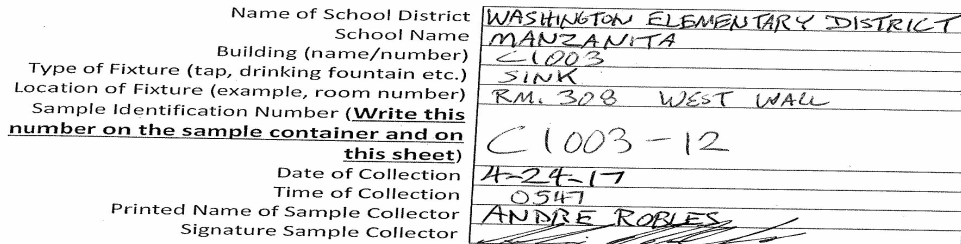 Name of School District WASHINGTON ELEMENTARY DISTRICT
School Name MANZANITA
Building (name/number) C1003
Type of Fixture (tap, drinking fountain etc.) SINK
Location of Fixture (example, room number) RM. 308 WEST WALL
Sample Identification Number (Write this
number on the sample container and on
this sheet) C1003-12
Date of Collection 4-24-17
Time of Collection 0547
Printed Name of Sample Collector ANDRE ROBLES
Signature Sample Collector